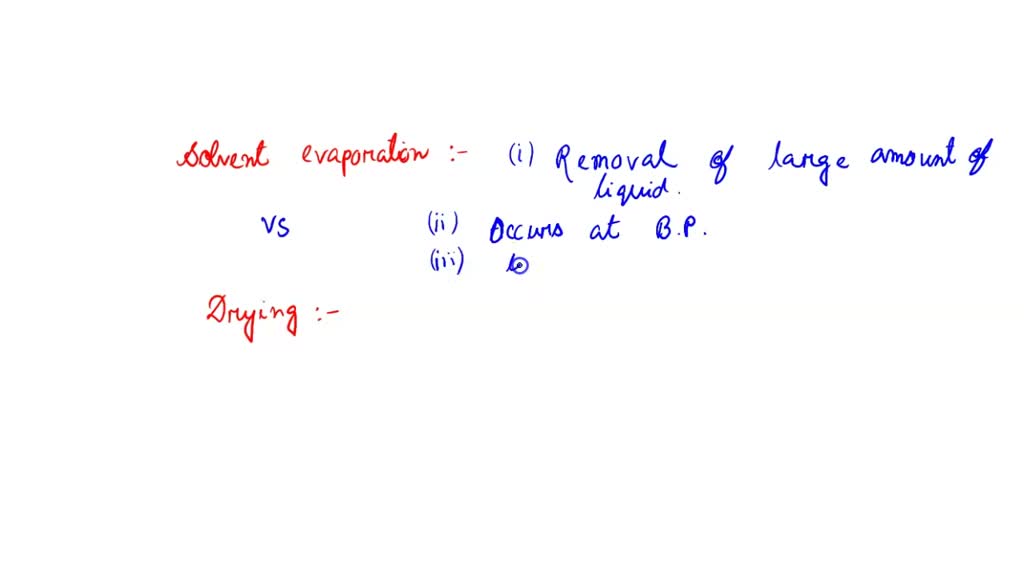 Solvent evaporation :- (i) Removal of large amount of
liquid.
vs (ii) Occurs at B.P.
(iii)
Drying :-